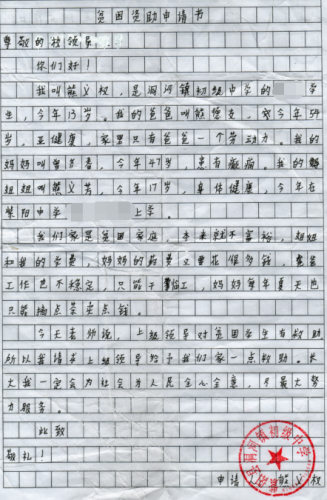 贫困资助申请书
尊敬的校领导:
你们好!
我叫熊义权,是洞河镇初级中学的 学
生,今年13岁。我的爸爸叫熊德支,今年54
岁,亚健康,家里只有爸爸一个劳动力。我的
妈妈叫 春,今年47岁,患有癫痫。我的
姐姐叫熊义芳,今年17岁,身体健康,今年在
紫阳中学 上学。
我们家是贫困家庭,本来就不富裕,姐姐
和我的学费,妈妈的药费又要花很多钱,爸爸
工作也不稳定,只能干临工,妈妈每年夏天也
只能摘点茶卖点钱。
今天老师说,上级领导对贫困学生有救助
所以我请求上级领导给予我们家一点救助。长
大我一定会为社会为人民全心全意,尽最大努
力服务。
此致
敬礼!
申请人:熊义权
洞河镇初级中学